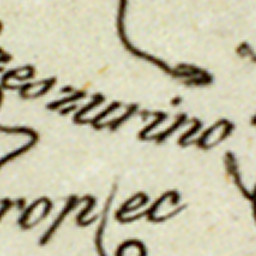 eszurino
ropiec